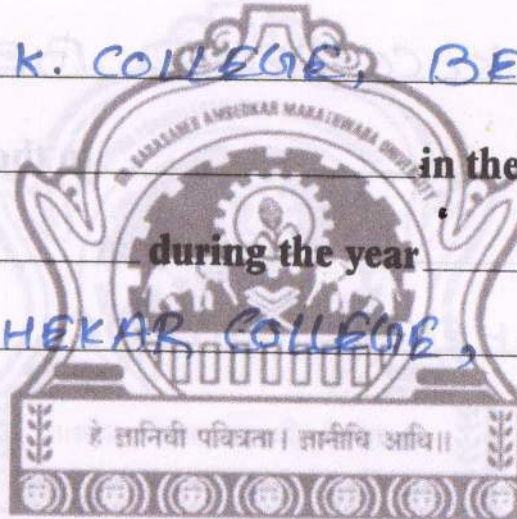 K. COLLEGE, BE
DR. BABASAHEB AMBEDKAR MARATHWADA UNIVERSITY
in the
during the year
HEKAR COLLEGE,
हे ज्ञानियी पवित्रता। ज्ञानीयि आथि॥